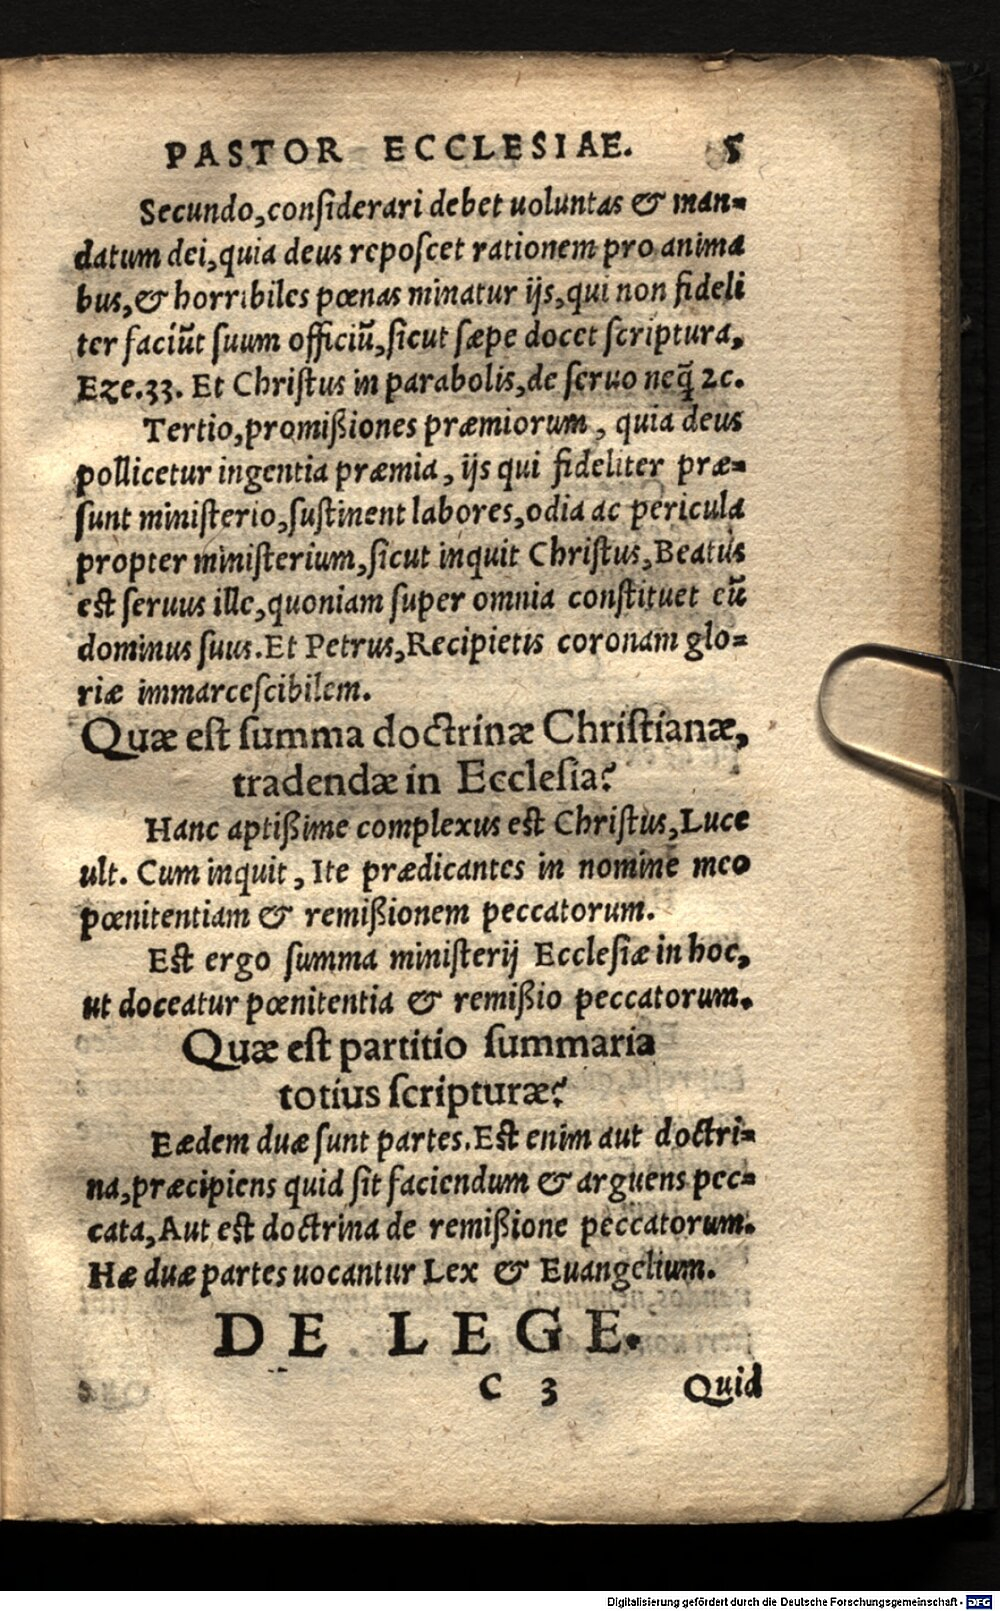 PASTOR ECCLESIAE. 5
Secundo,conſiderari debet uoluntas & man=
datum dei,quia deus repoſcet rationem pro anima
bus,& horribiles pœnas minatur ijs,qui non fideli
ter faciũt ſuum officiũ,ſicut ſæpe docet ſcriptura,
Eze.33. Et Chriſtus in parabolis,de ſeruo neq̃ ꝛc.
Tertio,promißiones præmiorum, quia deus
pollicetur ingentia præmia, ijs qui fideliter præ=
ſunt miniſterio,ſuſtinent labores,odia ac pericula
propter miniſterium,ſicut inquit Chriſtus,Beatus
eſt ſeruus ille,quoniam ſuper omnia conſtituet eũ
dominus ſuus.Et Petrus,Recipietis coronam glo=
riæ immarceſcibilem.
Quæ eſt ſumma doctrinæ Chriſtianæ,
tradendæ in Eccleſia?
Hanc aptißime complexus eſt Chriſtus,Luce
ult. Cum inquit, Ite prædicantes in nomine meo
pœnitentiam & remißionem peccatorum.
Eſt ergo ſumma miniſterij Eccleſiæ in hoc,
ut doceatur pœnitentia & remißio peccatorum.
Quæ eſt partitio ſummaria
totius ſcripturæ?
Eædem duæ ſunt partes.Eſt enim aut doctri=
na,præcipiens quid ſit faciendum & arguens pec=
cata,Aut eſt doctrina de remißione peccatorum.
Hæ duæ partes uocantur Lex & Euangelium.
DE LEGE.
C 3 Quid
Digitalisierung gefördert durch die Deutsche Forschungsgemeinschaft - DFG